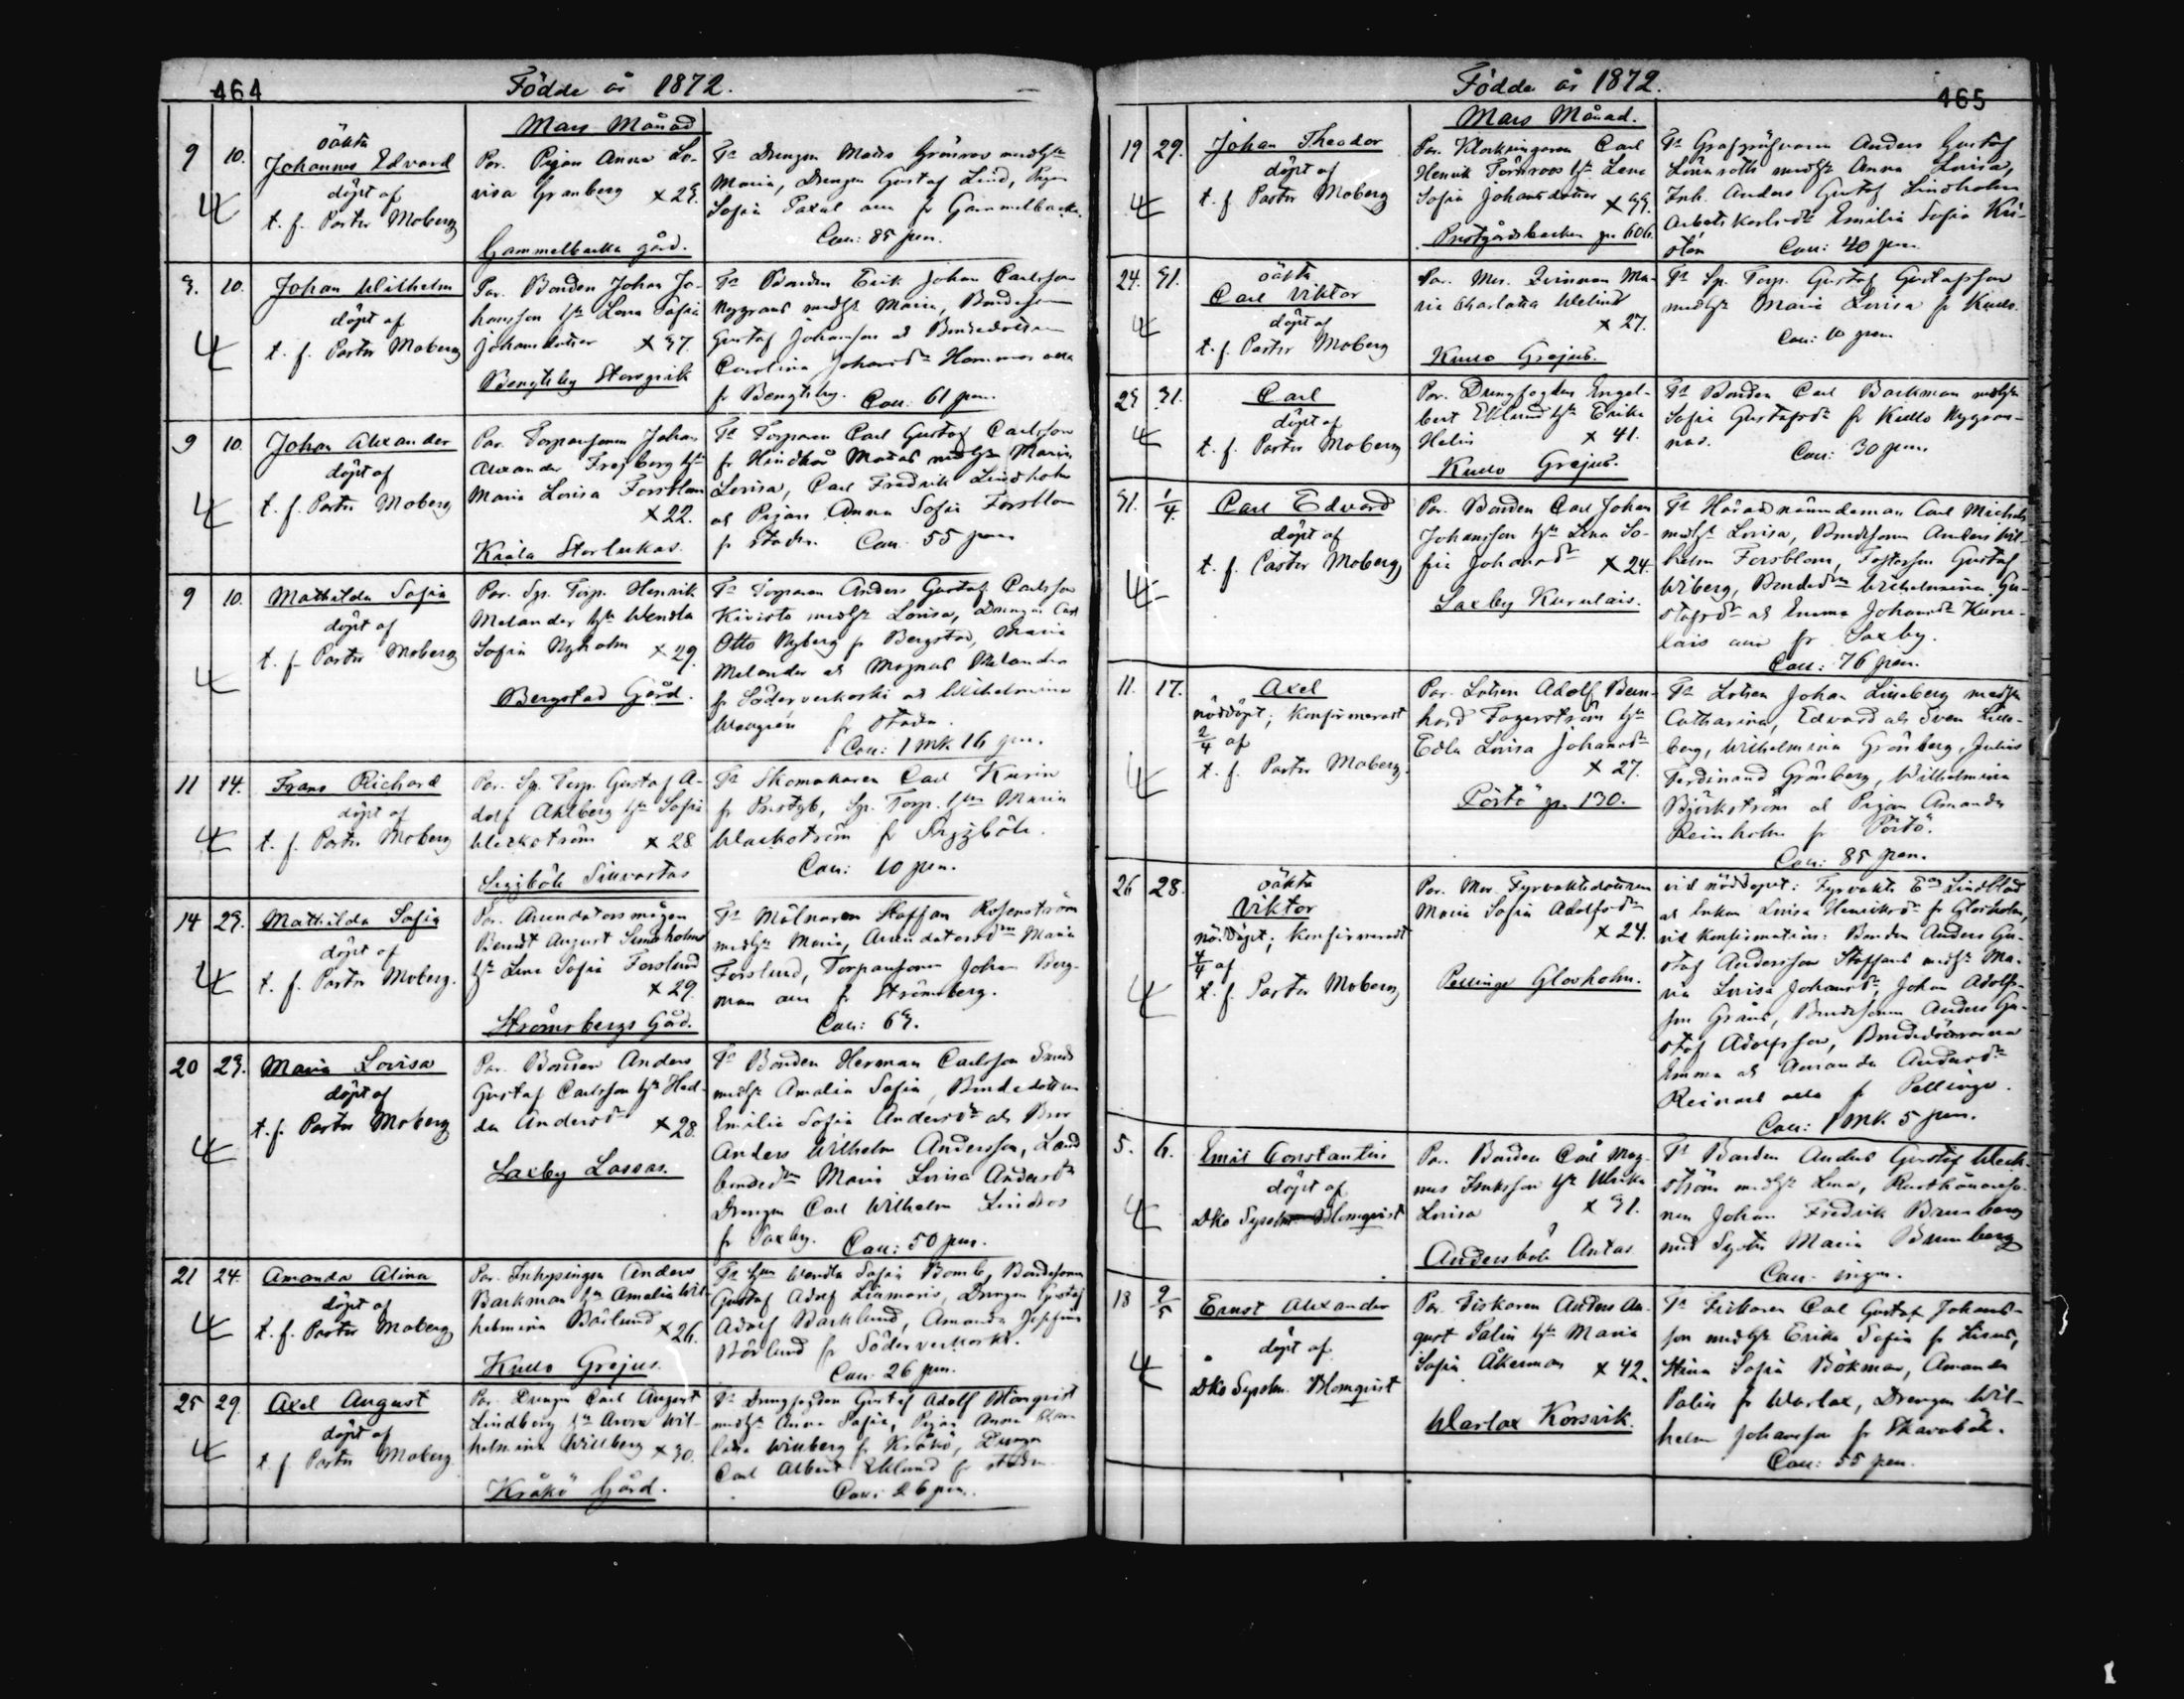 464
Födde år 1872.
Mars Månad
9 10. oäkta
Johannes Edvard
döpt af
t. f. Pastor Moberg
Par. Pigan Anna Lo-
visa Granberg x 23.
Gammelbacka gård.
Ts Drengen Mats Grönroos medhu
Maria, Drengen Gustaf Lind, Pigan
Sofia alla fr Gammelbacka.
Coll: 85 pen.
3. 10. Johan Wilhelm
döpt af
t. f. Pastor Moberg
Par. Bonden Johan Jo-
hansson hu Lena Sofia
Johansdotter x 37.
Bengtsby Storgrik
Ts Bonden Erik Johan Carlsson
Nygrans medhu Maria, Bondeson
Gustaf Johansson och Bondedottern
Carolina Johansdr Hommas alla
fr Bengtsby. Coll: 61 pen.
9 10. Johan Alexander
döpt af
t. f. Pastor Moberg
Par. Torparsonen Johan
Alexander Frejberg hu
Maria Lovisa Forsblom
x 22.
Kiala Storlukas.
Ts Torparen Carl Gustaf Carlsson
fr Hindhår medhu Maria
Lovisa, Carl Fredrik Lindholm
och Pigan Anna Sofia Forsblom
fr staden. Coll: 55 pen
9 10. Mathilda Sofia
döpt af
t. f. Pastor Moberg
Par. Sp. Torp. Henrik
Melander hu Wendla
Sofia Nyholm x 29.
Bergstad Gård.
Ts Torparen Anders Gustaf Carlsson
Kivistö medhu Lovisa, Drengen Carl
Otto Nyberg fr Bergstad, Maria
Melander och Magnus Melander
fr Söderverkoski och Wilhelmina
fr staden.
Coll: 1 mk 16 pen.
11 14. Frans Richard
döpt af
t. f. Pastor Moberg
Par. Sp. Torp. Gustaf A-
dolf Ahlberg hu Sofia
Weckström x 28
Siggböle Sillvastas
Ts Skomakaren Carl
fr Prestgb, Sp. Torp. hun Maria
Weckström fr Siggböle.
Coll: 10 pen.
14 23. Mathilda Sofia
döpt af
t. f. Pastor Moberg.
Par. Arendatorsmågen
Berndt August
hu Lena Sofia Forslund
x 29.
Strömsbergs Gård.
Ts Mölnaren Staffan Rosenström
medhu Maria, Arendatorsdn Maria
Forslund, Torparsonen Johan Berg-
man alla fr Strömsberg.
Coll: 63.
20 23. Maria Lovisa
döpt af
t. f. Pastor Moberg
Par. Bonden Anders
Gustaf Carlsson hu Hed-
da Andersdr x 28.
Saxby Lassas.
Ts Bonden Herman Carlsson Smeds
medhu Amalia Sofia, Bondedottern
Emilia Sofia Andersdr och Bror
Anders Wilhelm Andersson, Land
bondedn Maria Lovisa Andersdr
Drengen Carl Wilhelm Lindros
fr Saxby. Coll: 50 pen.
21 24. Amanda Alina
döpt af
t. f. Pastor Moberg
Par. Inhysingen Anders
Backman hu Amalia Wil-
helmina Bärlund x 26.
Kullo Grejus.
Ts hun Wendla Sofia Bomb, Bondesonen
Gustaf Adolf Lismaris, Drengen Gustaf
Adolf Backlund, Amanda Josefina
Bärlund fr Söderverkoski.
Coll: 26 pen.
25 29. Axel August
döpt af
t. f. Pastor Moberg
Par. Drengen Carl August
Lindberg hu Anna Wil-
helmina Willberg x 30.
Kråkö Gård.
Ts Drengfogden Gustaf Adolf Blomqvist
medhu Anna Sofia, Pigan Anna Char-
lotta Willberg fr Kråkö, Drengen
Carl Albert Eklund fr staden
Coll: 26 pen.
Födde år 1872.
465
Mars Månad.
19 29. Johan Theodor
döpt af
t. f. Pastor Moberg
Par. Klockringaren Carl
Henrik Törnroos hu Lena
Sofia Johansdotter x 33.
Prestgårdsbacken pn 606.
Ts Grafgräfvaren Anders Gustaf
Lönnroth medhu Anna Lovisa,
Inh. Anders Gustaf Lindholm
Arbetskarlsdr Emilia Sofia Kri-
stén Coll: 40 pen.
24. 31. oäkta
Carl Viktor
döpt af
t. f. Pastor Moberg
Par. Mor. Qvinnan Ma-
ria Charlotta Welind
x 27.
Kullo Grejus.
Ts Sp. Torp. Gustaf Gustafsson
medhu Maria Lovisa fr Kullo.
Coll: 10 pen.
23 31. Carl
döpt af
t. f. Pastor Moberg
Par. Drengfogden Engel-
bert Eklund hu Erika
Helin x 41.
Kullo Grejus.
Ts Bonden Carl Backman medhu
Sofia Gustafsdr fr Kullo Nygran-
nas. Coll: 30 pen.
31. 1/4. Carl Edvard
döpt af
t. f. Pastor Moberg
Par. Bonden Carl Johan
Johansson hu Lena So-
fia Johansdr x 24.
Saxby Kurulais.
Ts Häradsnämndeman Carl Michels
medhu Lovisa, Bondesonen Anders Wil-
helm Forsblom, Fostersson Gustaf
Wiberg, Bondedn Wilhelmina Gu-
stafsdr och Emma Johansdr Kuru-
lais alla fr Saxby.
Coll: 76 pen.
11. 17. Axel
nöddöpt; konfirmeradt
2/4 af
t. f. Pastor Moberg.
Par. Lotsen Adolf Bern-
hard Fagerström hu
Edla Lovisa Johansdr
x 27.
Pörtö pn 130.
Ts Lotsen Johan Lilleberg medhu
Catharina, Edvard och Sven Lille-
berg, Wilhelmina Grönberg, Julius
Ferdinand Grönberg, Wilhelmina
Björkström och Pigan Amanda
Reinholm fr Pörtö.
Coll: 85 pen.
26 28. oäkta
Viktor
nöddöpt; konfirmeradt
4/4 af
t. f. Pastor Moberg
Par. Mor. Fyrvaktsdottren
Maria Sofia Adolfsdr
x 24.
Pellinge Glosholm.
vid nöddopet: Fyrvakts Lindblad
och enkan Lovisa Henriksdr fr Glosholm,
vid konfirmation: Bonden Anders Gu-
staf Andersson Staffans medhu Ma-
ria Lovisa Johansdr, Johan Adolfs-
son Gräns, Bondesonen Anders Gu-
staf Adolfsson, Bondedöttrarna
Emma och Amanda Andersdr
Reinars alla fr Pellinge.
Coll: 1 mk 5 pen.
5. 6. Emil Constantin
döpt af
Dko Sysslm. Blomqvist
Par. Bonden Carl Mag-
nus Isaksson hu Ulrika
Lovisa x 31.
Andersböle Antas
Ts Bonden Anders Gustaf Weck-
ström medhu Lena,
nen Johan Fredrik Brunberg
med Syster Maria Brunberg
Coll: ingen.
18 2/5 Ernst Alexander
döpt af
Dko Sysslm. Blomqvist
Par. Fiskaren Anders Au-
gust Palin hu Maria
Sofia Åkerman x 42.
Warlax Korsvik.
Ts Fiskaren Carl Gustaf Johans-
son medhu Erika Sofia fr
Stina Sofia Bökman, Amanda
Palin fr Warlax, Drengen Wil-
helm Johansson fr Skavaböle.
Coll: 55 pen.